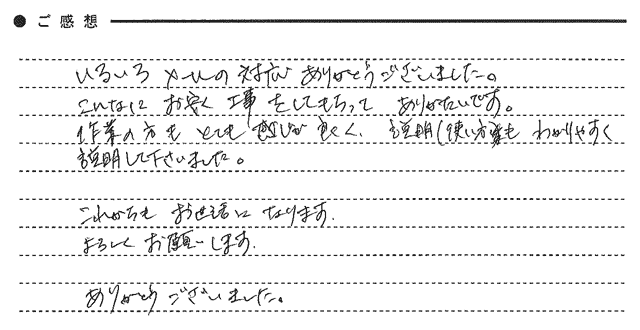 ご感想
いろいろ メールの対応 ありがとうございました。
こんなに お安く 工事をしてもらって ありがたいです。
作業の方も とても 感じが良く、説明(使い方等も わかりやすく
説明して下さいました。
これからも お世話になります.
よろしく お願いします.
ありがとう ございました。